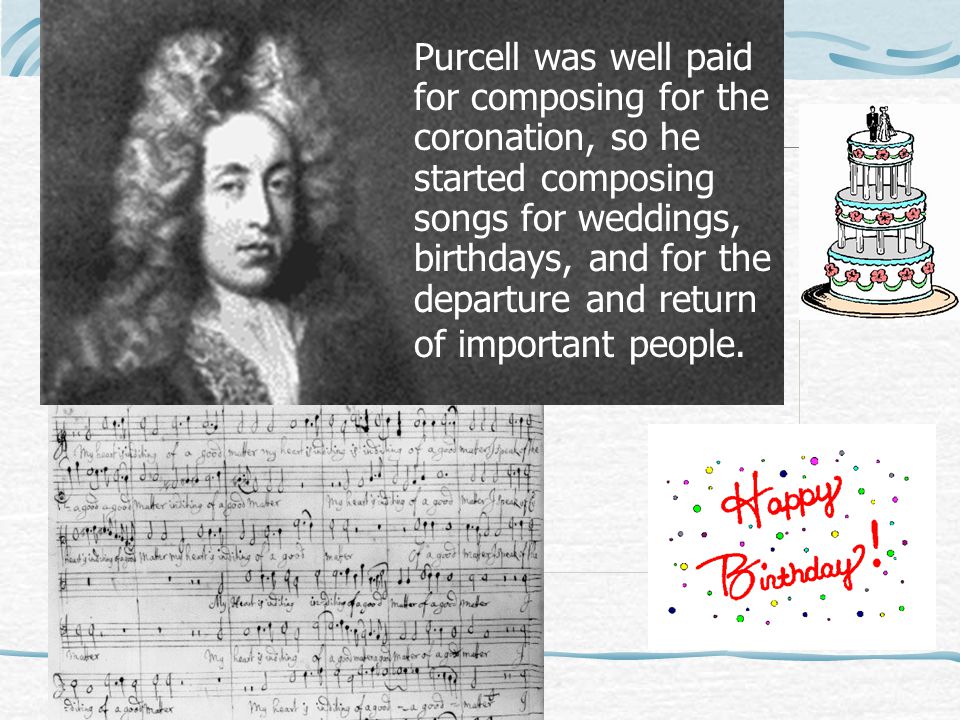 Purcell was well paid
for composing for the
coronation, so he
started composing
songs for weddings,
birthdays, and for the
departure and return
of important people.
My heart is inditing of a good matter my heart is inditing is inditing of a good matter I speak of the
a good a good matter inditing of a good matter My heart is inditing of a good matter I speak of
heart is inditing of a good matter my heart is inditing of a good matter Of a good matter I speak of the
My Heart is inditing inditing of a good matter of a good matter I
matter My heart is inditing of a good matter a good matter of a good matter I
inditing of a good matter My heart is inditing of a good a good matter I
Happy
Birthday!